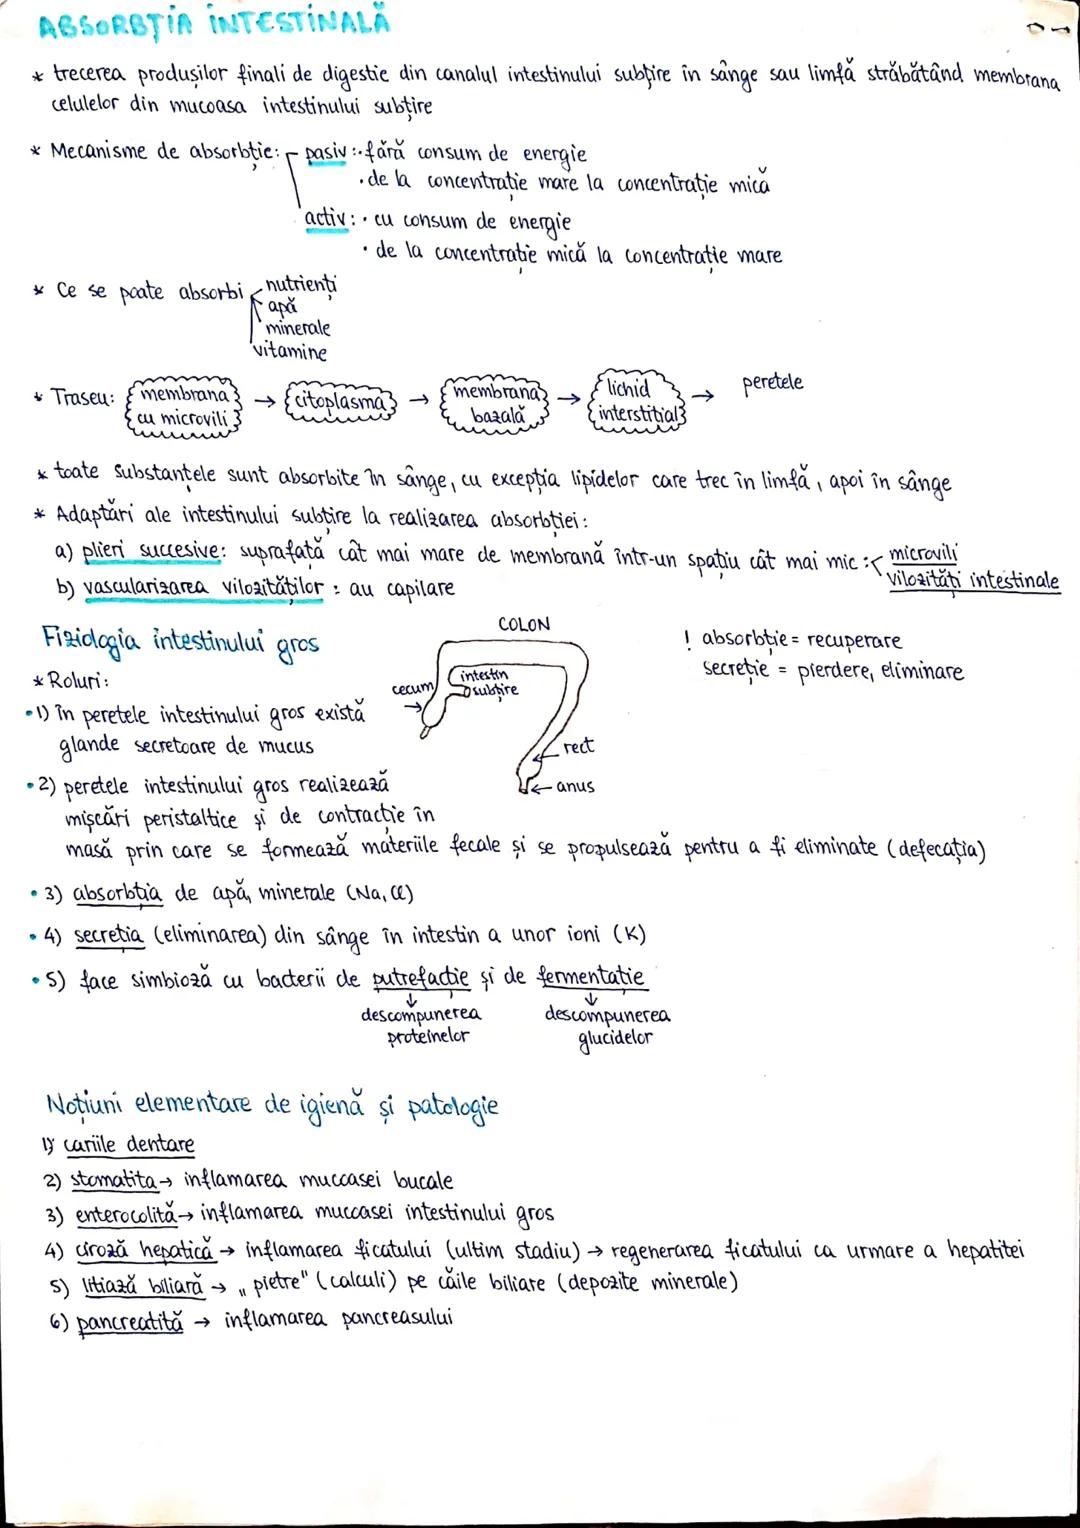 ABSORBȚIA INTESTINALĂ
* trecerea produșilor finali de digestie din canalul intestinului subțire în sânge sau limfă străbătând membrana
celulelor din mucoasa intestinului subțire
* Mecanisme de absorbție: pasiv: • fără consum de energie
• de la concentrație mare la concentrație mică
activ: • cu consum de energie
• de la concentrație mică la concentrație mare
* Ce se poate absorbi nutrienți
apă
minerale
vitamine
* Traseu: membrană cu microvili → citoplasmă → membrana bazală → lichid interstițial → peretele
* toate substanțele sunt absorbite în sânge, cu excepția lipidelor care trec în limfă, apoi în sânge
* Adaptări ale intestinului subțire la realizarea absorbției:
a) plieri succesive: suprafață cât mai mare de membrană într-un spațiu cât mai mic: microvili
vilozități intestinale
b) vascularizarea vilozităților: au capilare
Fiziologia intestinului gros
COLON
intestin
subțire
cecum
rect
anus
! absorbție = recuperare
secreție = pierdere, eliminare
* Roluri:
• 1) în peretele intestinului gros există
glande secretoare de mucus
• 2) peretele intestinului gros realizează
mișcări peristaltice și de contracție în
masă prin care se formează materiile fecale și se propulsează pentru a fi eliminate (defecația)
• 3) absorbția de apă, minerale (Na, Cl)
• 4) secreția (eliminarea) din sânge în intestin a unor ioni (K)
• 5) face simbioză cu bacterii de putrefacție și de fermentație
↓ ↓
descompunerea descompunerea
proteinelor glucidelor
Noțiuni elementare de igienă și patologie
1) cariile dentare
2) stomatita → inflamarea mucoasei bucale
3) enterocolită → inflamarea mucoasei intestinului gros
4) ciroză hepatică → inflamarea ficatului (ultim stadiu) → regenerarea ficatului ca urmare a hepatitei
5) litiază biliară → „pietre" (calculi) pe căile biliare (depozite minerale)
6) pancreatită → inflamarea pancreasului